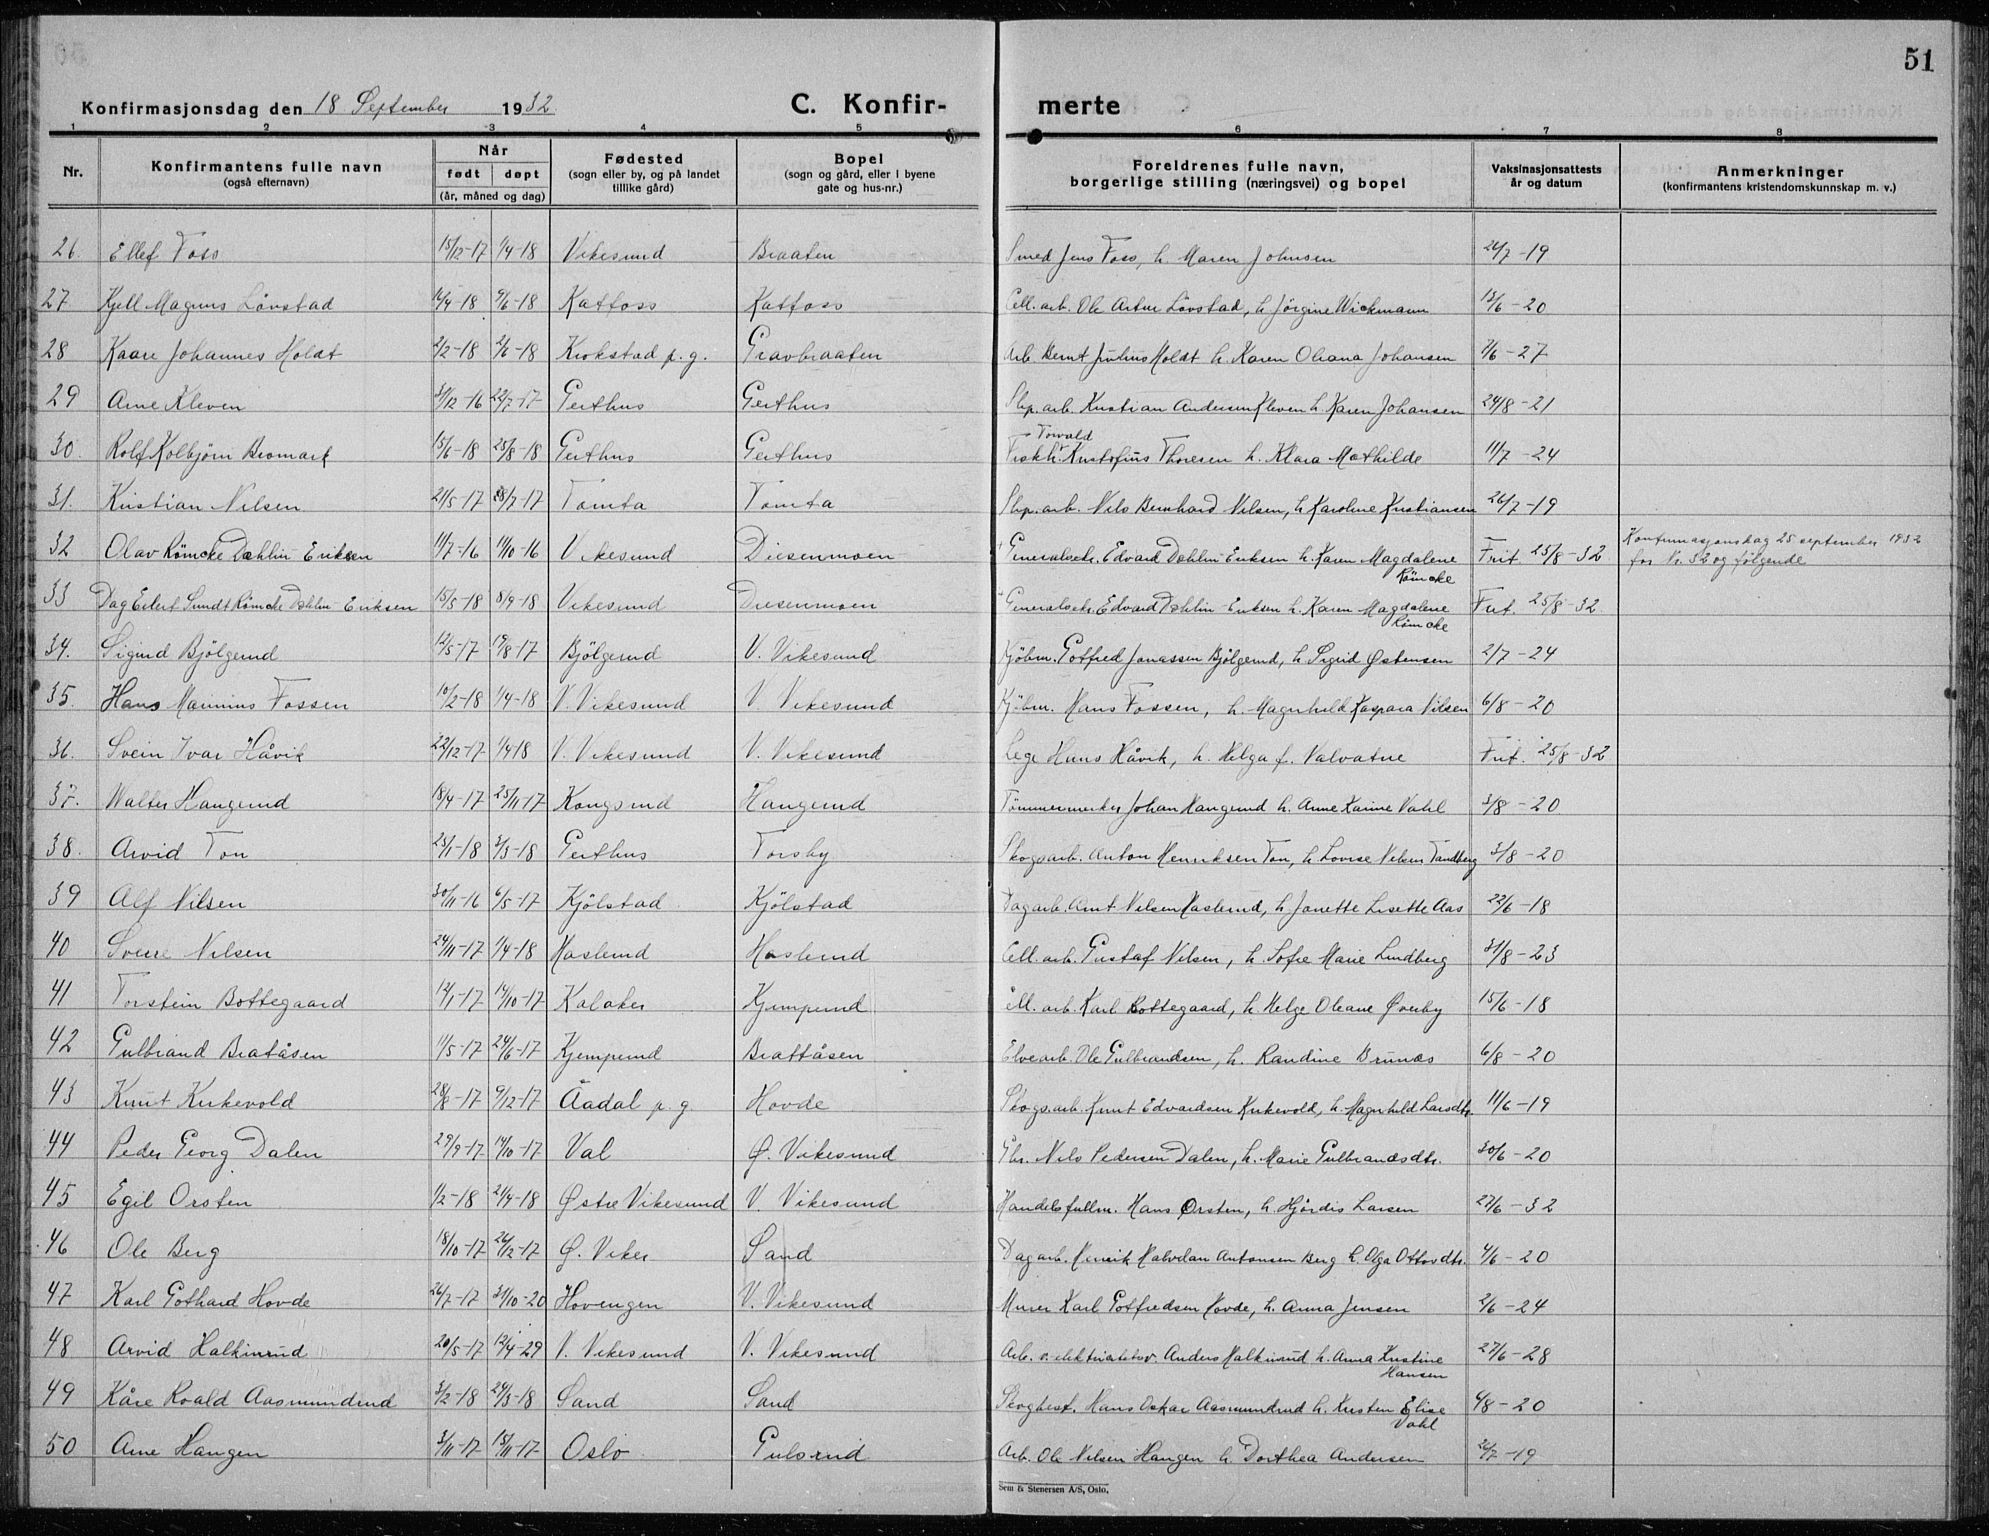 51
Konfirmasjonsdag den 18 September 1932. C. Konfir- merte
1 2 3 4 5 6 7 8
Nr. Konfirmantens fulle navn (også efternavn) Når født døpt (år, måned og dag) Fødested (sogn eller by, og på landet tillike gård) Bopel (sogn og gård, eller i byene gate og hus-nr.) Foreldrenes fulle navn, borgerlige stilling (næringsvei) og bopel Vaksinasjonsattests år og datum Anmerkninger (konfirmantens kristendomskunnskap m. v.)
26. Ellef Foss 15/12-17 1/4-18 Vikesund Braaten Smed Jens Foss, h. Maren Johnsen 24/7-19
27. Kjell Magnus Lövstad 14/4-18 9/6-18 Katfoss Katfoss Cell. arb. Ole Artur Lövstad, h. Jörgine Wickmann 13/6-20
28 Kaare Johannes Holdt 2/2-18 2/6-18 Krokstad p.g. Gravbraaten Arb. Bernt Julius Holdt h. Karen Oliana Johansen 7/6-27
29 Arne Kleven 31/12-16 22/7-17 Gerthus Gerthus Slip. arb. Kristian Andersen Kleven h. Karen Johansen 24/8-21
30. Rolf Kolbjörn Bromark 15/6-18 25/8-18 Gerthus Gerthus Fiskh. Torvald Kristofius Thoresen h. Klara Mathilde 11/7-24
31. Kristian Nilsen 21/5-17 28/7-17 Tomta Tomta Slip. arb. Nils Bernhard Nilsen, h. Karoline Kristiansen 26/7-19
32 Olav Römcke Dæhlin-Eriksen 11/7-16 11/10-16 Vikesund Diesenmoen Generalsekr. Edvard Dæhlin-Eriksen h. Karen Magdalene Römcke Frit. 25/8-32 Konfirmasjonsdag 25 september 1932 for Nr. 32 og følgende
33 Dag Eilert Sundt Römcke Dæhlin-Eriksen 15/5-18 8/9-18 Vikesund Diesenmoen Generalsekr. Edvard Dæhlin-Eriksen h. Karen Magdalene Römcke Frit. 25/8-32.
34. Sigurd Bjölgerud 12/5-17 19/8-17 Bjölgerud V. Vikesund Kjöbm. Gotfred Jonassen Bjölgerud, h. Sigrid Østensen 2/7-24
35. Hans Marinius Fossen 10/2-18 1/4-18 V. Vikesund V. Vikesund Kjöbm. Hans Fossen, h. Magnhild Kaspara Nilsen 6/8-20
36. Svein Ivar Håvik 22/12-17 1/4 18 V. Vikesund V. Vikesund Lege Hans Håvik, h. Helga f. Valvatne Frit. 25/8-32
37. Walter Haugerud 18/4-17 25/11-17 Kongsrud Haugerud Tömmermerker Johan Haugerud h. Anne Karine Vahl 3/8-20
38. Arvid Ton 25/1-18 3/3-18 Gerthus Torsby Skogsarb. Anton Henriksen Ton, h. Lovise Nilsen Tandberg 3/8-20
39 Alf Nilsen 30/11-16 6/5-17 Kjölstad Kjölstad Dagarb. Arnt Nilsen Haslerud, h. Janette Lisette Aas 22/6-18
40 Sverre Nilsen 24/11-17 1/4-18 Haslerud Haslerud Cell. arb. Gustaf Nilsen, h. Sofie Marie Lindberg 31/8-23
41 Torstein Bottegaard 12/1-17 14/10-17 Kalaker Kjemperud Cell. arb. Karl Bottegaard, h. Helge Oleane Øverby 15/6-18
42 Gulbrand Bratåsen 11/5-17 24/6-17 Kjemperud Brattåsen Elvearb. Ole Gulbrandsen, h. Randine Brunæs 6/8-20
43 Knut Kirkevold 28/8-17 9/12-17 Ådal p.g. Hovde Skogsarb. Knut Edvardsen Kirkevold, h. Magnhild Larsdtr. 11/6-19
44 Peder Georg Dalen 29/9-17 14/10-17 Val Ø. Vikesund Gbr. Nils Pedersen Dalen, h. Marie Gulbrandsdtr. 30/6-20
45 Egil Orsten 1/2-18 21/4-18 Østre Vikesund V. Vikesund Handelsfullm. Hans Orsten, h. Hjördis Larsen 27/6-32
46 Ole Berg 18/10-17 26/12-17 Ø. Viker Sand Dagarb. Henrik Halvdan Antonsen Berg h. Olga Ottosdtr. 4/6-20
47 Karl Gothard Hovde 26/7-17 31/10-20 Hovengen V. Vikesund Murer Karl Gotfredsen Hovde, h. Anna Jensen 2/6-24
48 Arvid Halkinrud 20/5-17 12/4-29 V. Vikesund V. Vikesund Arb. v. elektrisitetsv. Anders Halkinrud h. Anna Kristine Hansen 27/6-28
49 Kåre Roald Aasmundrud 3/2-18 24/3-18 Sand Sand Skogbest. Hans Oskar Aasmundrud h. Kirsten Elise Vahl 4/8-20
50 Arne Haugen 3/11-17 18/11-17 Oslo Gulsrud Arb. Ole Nilsen Haugen h. Dorthea Andersen 24/7-19
Sem & Stenersen A/S, Oslo.